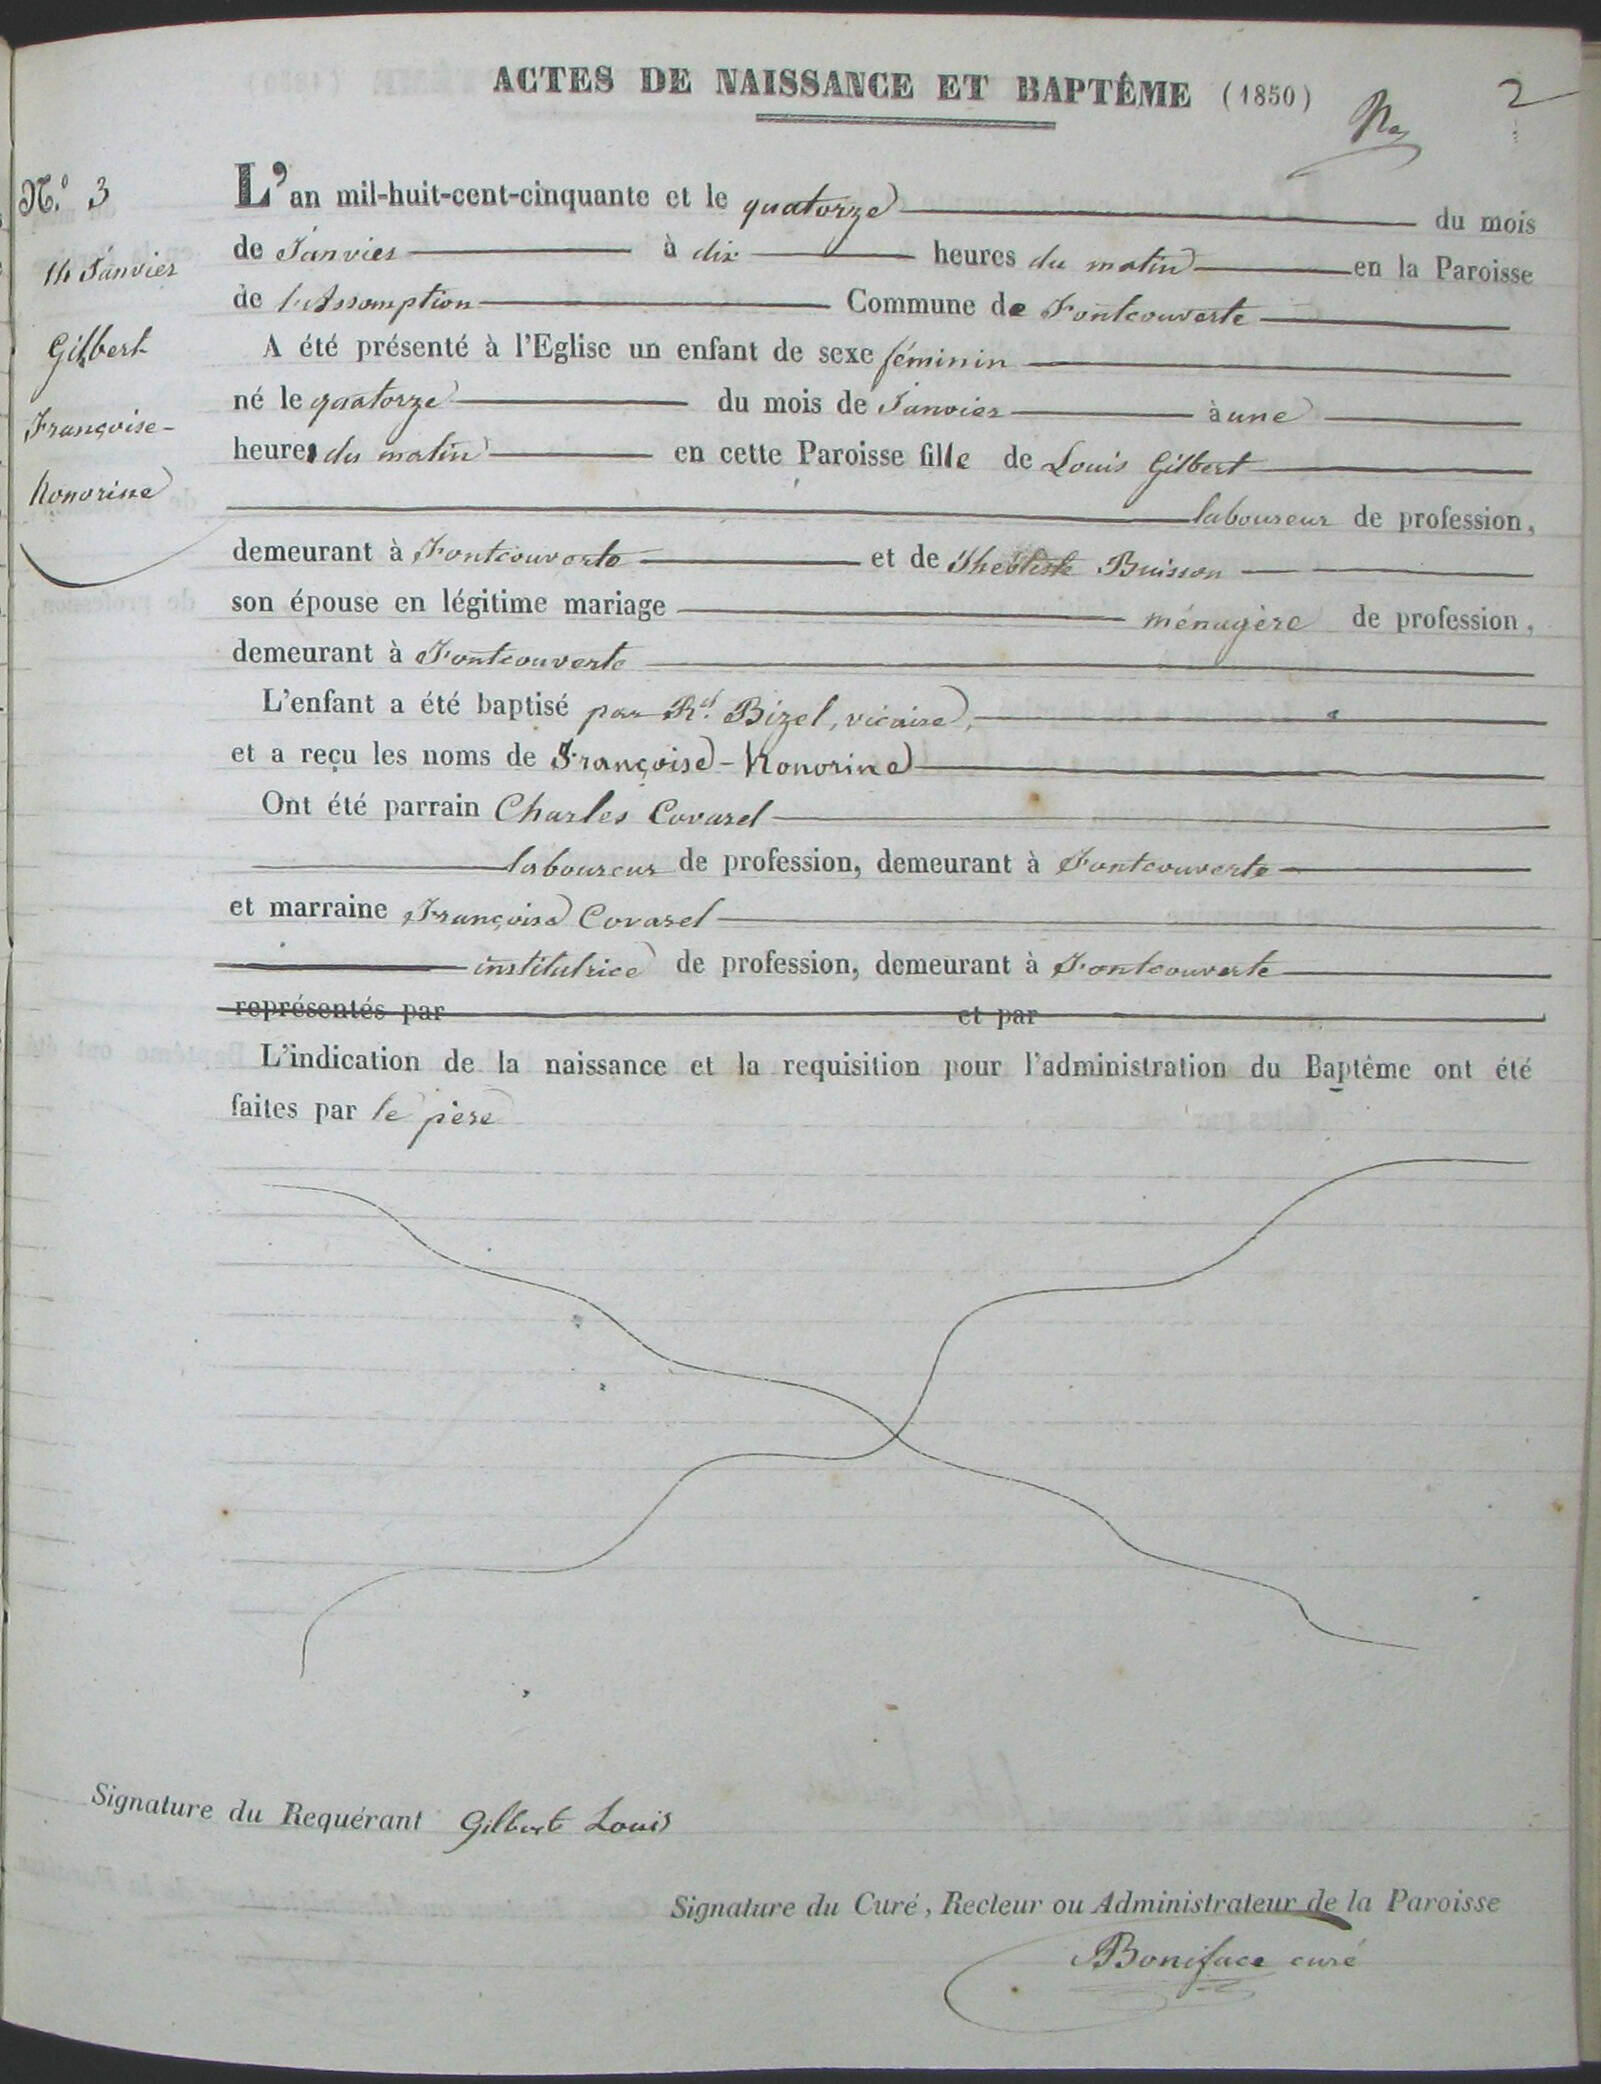 ACTES DE NAISSANCE ET BAPTÊME (1850)
2
N.º 3
14 Janvier
Gilbert
Françoise-
honorine
L'an mil-huit-cent-cinquante et le quatorze du mois
de Janvier à dix heures du matin en la Paroisse
de l'Assomption Commune de Fontcouverte
A été présenté à l'Eglise un enfant de sexe féminin
né le quatorze du mois de Janvier à une
heure du matin en cette Paroisse fille de Louis Gilbert
laboureur de profession,
demeurant à Fontcouverte et de Théotiste Buisson
son épouse en légitime mariage ménagère de profession,
demeurant à Fontcouverte
L'enfant a été baptisé par Rd. Bizel, vicaire,
et a reçu les noms de Françoise-honorine
Ont été parrain Charles Covarel
laboureur de profession, demeurant à Fontcouverte
et marraine Françoise Covarel
institutrice de profession, demeurant à Fontcouverte
représentés par et par
L'indication de la naissance et la requisition pour l'administration du Baptême ont été
faites par le père
Signature du Requérant Gilbert Louis
Signature du Curé, Recteur ou Administrateur de la Paroisse
Boniface curé